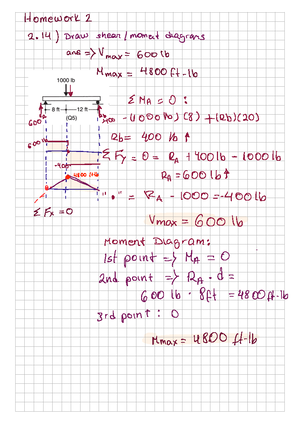 Homework 2
2.14) Draw shear/moment diagrams
ans => Vmax = 600 lb
Mmax = 4800 ft-lb
1000 lb
8 ft 12 ft
(Q5)
600
400
Σ MA = 0 :
-(1000 lb)(8) + (Rb)(20)
Rb = 400 lb ↑
600 lb
Σ Fy = 0 = RA + 400 lb - 1000 lb
-400
RA = 600 lb ↑
" " = RA - 1000 = -400 lb
Σ Fx = 0
Vmax = 600 lb
Moment Diagram:
1st point => MA = 0
2nd point => RA · d =
600 lb · 8ft = 4800 ft-lb
3rd point : 0
Mmax = 4800 ft-lb